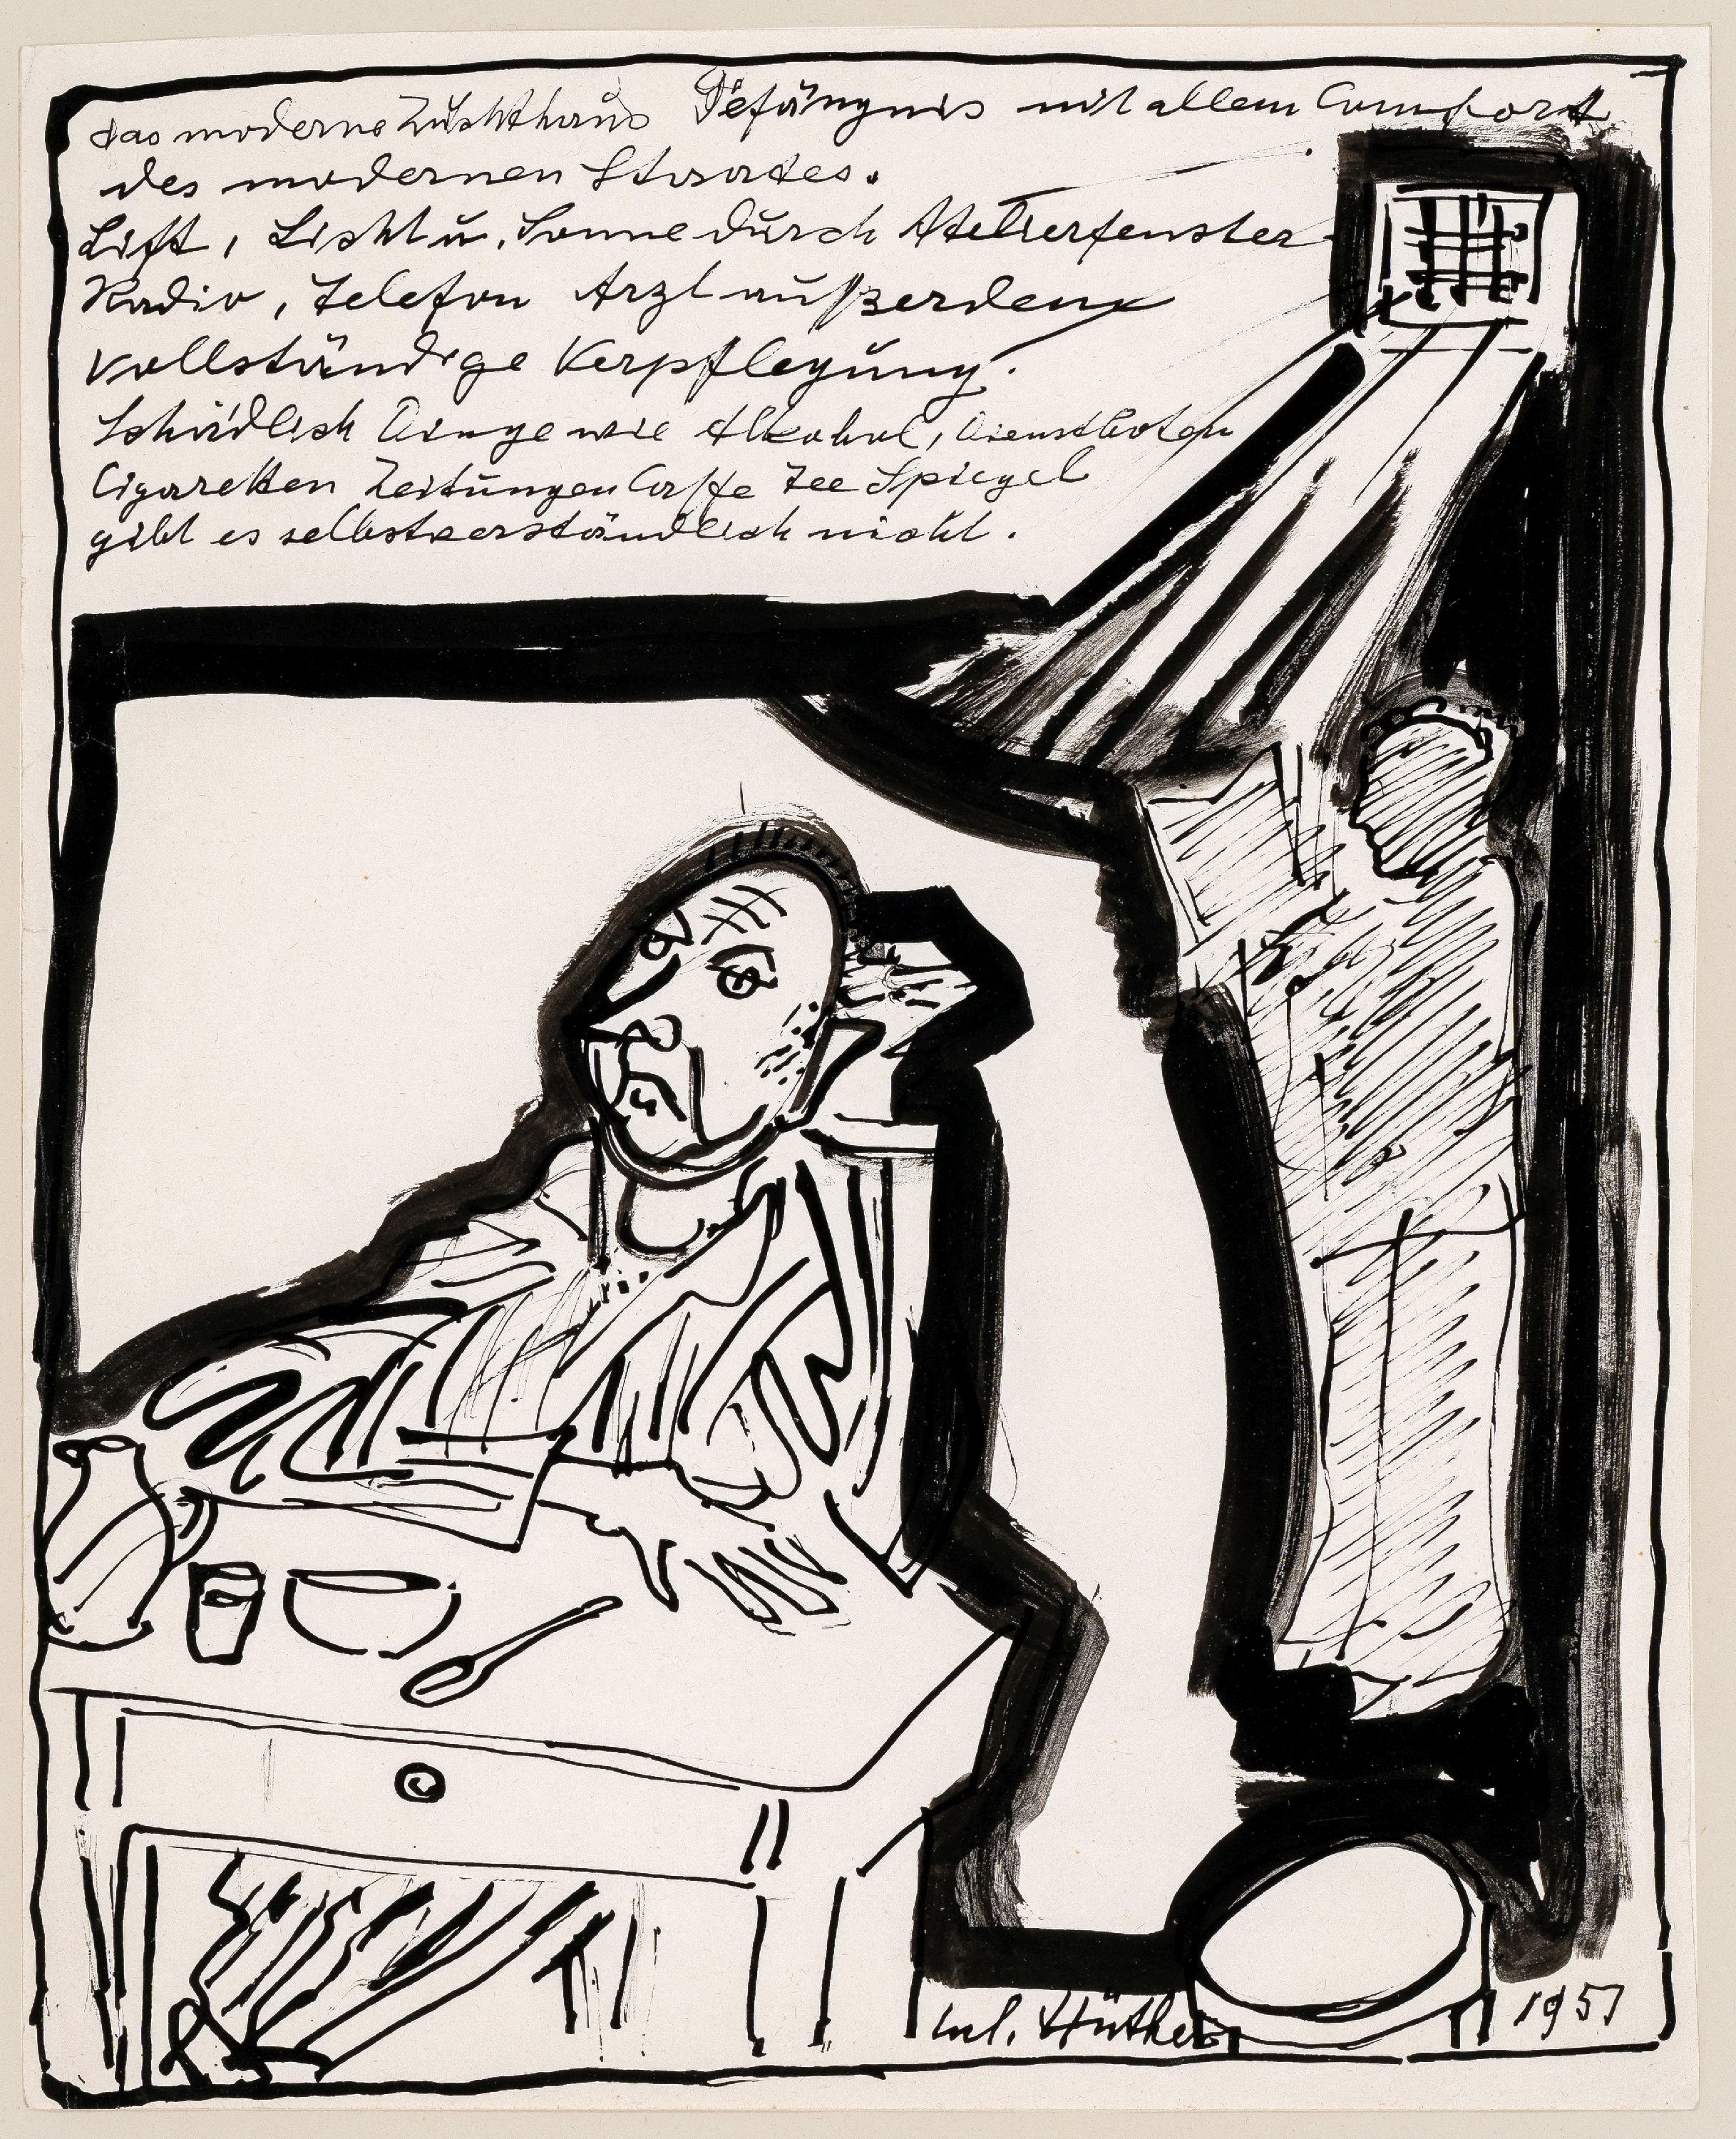 das moderne Zuchthaus Gefängnis mit allem Comfort
des modernen Staates.
Lift, Licht u. Sonne durch Atelierfenster
Radio, Telefon Arzt außerdem
vollständige Verpflegung.
Schädlich Dinge wie Alkohol, Dienstboten
Cigaretten Zeitungen Caffe Tee Spiegel
gibt es selbstverständlich nicht.
Jul. Hüther 1951